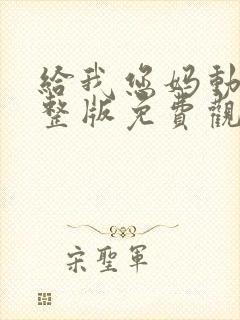 給我您媽動
整版免費觀
宋聖軍